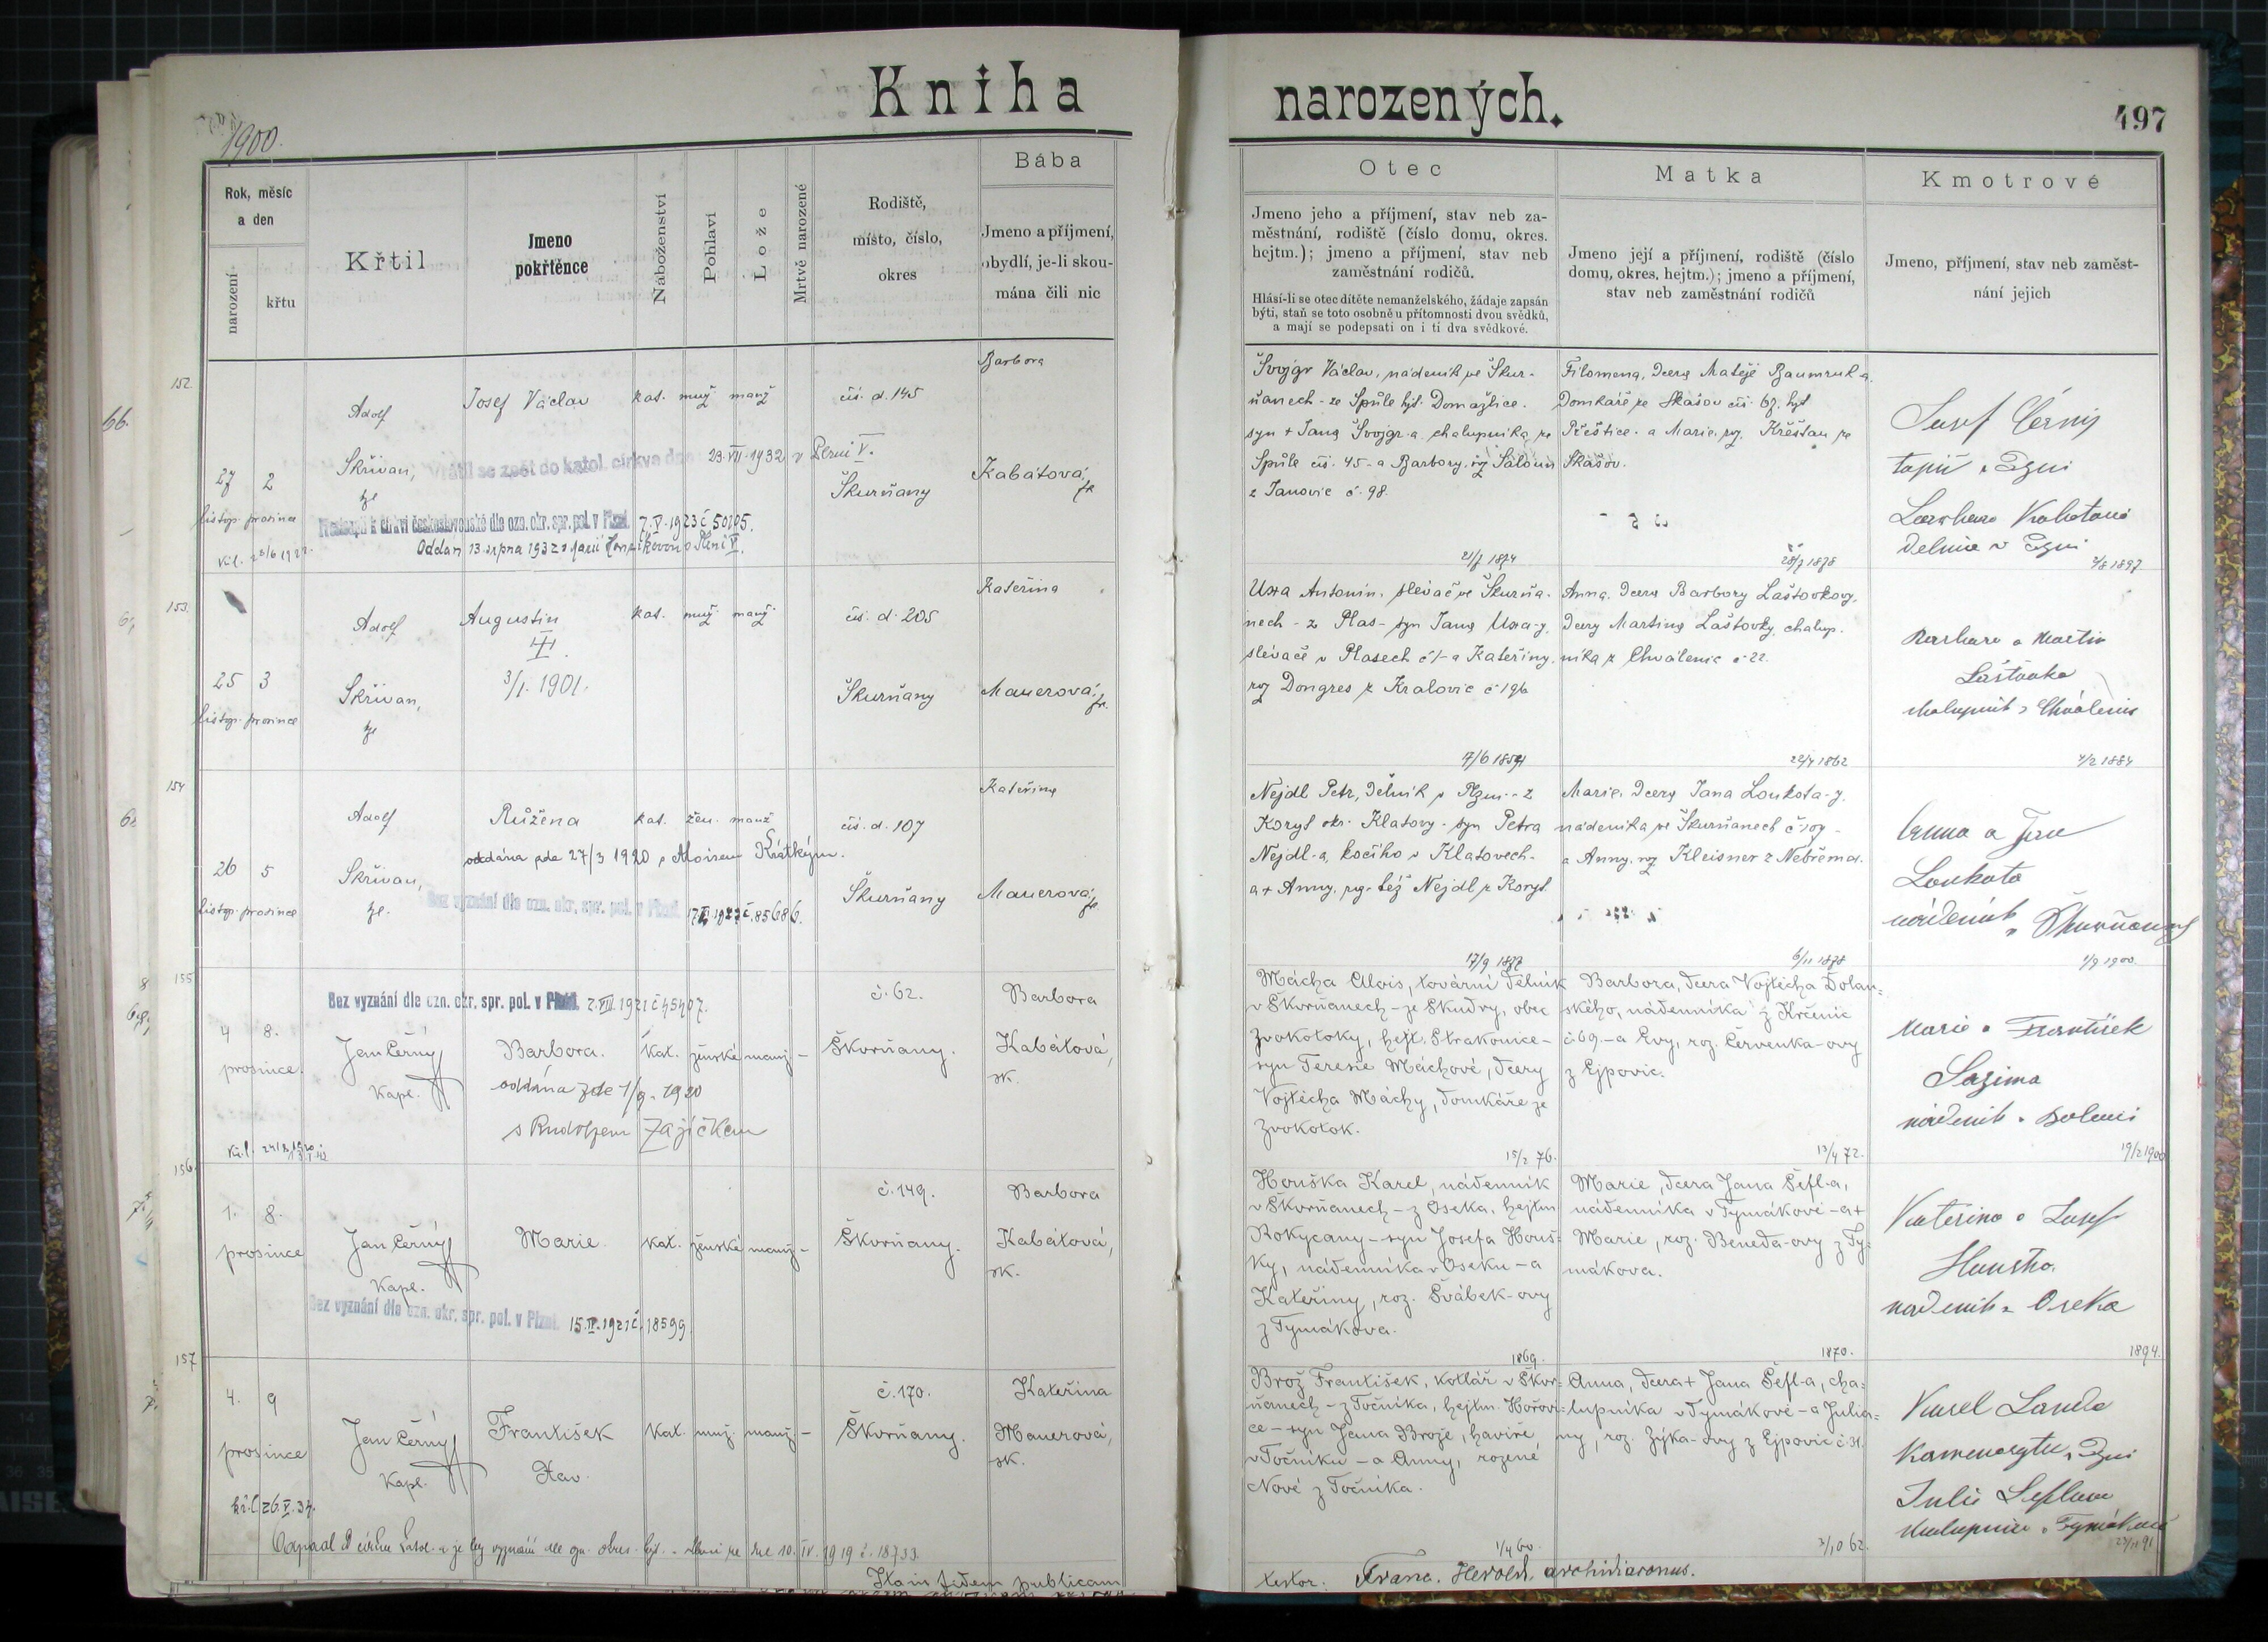 Kniha
narozených.
497
1900.
Rok, měsíc
a den
narození
křtu
Křtil
Jmeno
pokřtěnce
Náboženství
Pohlaví
Lože
Mrtvě narozené
Rodiště,
místo, číslo,
okres
Bába
Jmeno a příjmení,
obydlí, je-li skou-
mána čili nic
Otec
Jmeno jeho a příjmení, stav neb za-
městnání, rodiště (číslo domu, okres.
hejtm.); jmeno a příjmení, stav neb
zaměstnání rodičů.
Hlásí-li se otec dítěte nemanželského, žádaje zapsán
býti, staň se toto osobně u přítomnosti dvou svědků,
a mají se podepsati on i ti dva svědkové.
Matka
Jmeno její a příjmení, rodiště (číslo
domu, okres. hejtm.); jmeno a příjmení,
stav neb zaměstnání rodičů
Kmotrové
Jmeno, příjmení, stav neb zaměst-
nání jejich
152.
27 2
listop. prosince
Adolf
Skřivan,
Josef Václav
kat. muž. manž
čís. d. 145
Škurňany
Barbora
Kabátová,
Vrátil se zpět do katol. církve dne 23.VII.1932 v Plzni V.
Přestoupil k církvi československé dle ozn. okr. spr. pol. v Plzni 7.V.1923 č 50105.
Oddán 13. srpna 1932 s Marií
Švojgr Václav, nádeník ve Škur-
ňanech - ze Spůle hjt. Domažlice.
syn + Jana Švojgr-a, chalupníka ze
Spůle čís. 45 - a Barbory, roz. Saloun
z Janovic č. 98.
21/7 1874
Filomena, dcera Matěje Baumruk-a,
Domkáře ze Skašov čís. 67. hjt
Přeštice. a Marie, roz. Křešťan ze
Skašov.
28/7 1878
Josef Černý
topič v Plzni
Kabátová
dělnice v Plzni
2/8 1897
153.
25 3
listop. prosince
Adolf
Skřivan,
Augustin
3/1. 1901.
kat. muž. manž.
čís. d. 205
Škurňany
Kateřina
Mauerová,
Uxa Antonín, slévač ve Škurňa-
nech - z Plas - syn Jana Uxa-y,
slévače v Plasech č 1 - a Kateřiny,
roz Dongres z Kralovic č 196
7/6 1859
Anna, dcera Barbory Laštovkovy,
dcery Martina Laštovky, chalup-
níka z Chválenic č 22.
22/7 1862
Barbara a Martin
Laštovka
chalupník z Chválenic
7/2 1884
154
26 5
listop. prosince
Adolf
Skřivan,
Růžena
oddána zde 27/3 1920 s Aloisem Krátkým.
Bez vyznání dle ozn. okr. spr. pol. v Plzni č. 85686.
kat. žen. manž
čís. d. 107
Škurňany
Kateřina
Mauerová,
Nejdl Petr, dělník v Plzni - z
Koryt okr. Klatovy - syn Petra
Nejdl-a, kočího v Klatovech -
a + Anny, roz. též Nejdl z Koryt
17/9 1877
Marie, dcera Jana Loukota-y,
nádeníka ve Škurňanech č 109 -
a Anny, roz Kleisner z Nebřema.
6/11 1878
Anna a Jan
Loukota
nádeník v Škurňanech
1/9 1900
155
4 8.
prosince.
Bez vyznání dle ozn. okr. spr. pol. v Plzni. 2.VIII.1921 č 45407.
Jan Černý
Kapl.
Barbora.
oddána zde 1/9. 1920
s Rudolfem Zajíčkem
Kat. ženské manž. -
č. 62.
Škvrňany.
Barbora
Kabátová,
zk.
Mácha Alois, tovární dělník
v Škvrňanech - ze Skudry, obec
Zvokotoky, hejt. Strakonice -
syn Terezie Máchové, dcery
Vojtěcha Máchy, domkáře ze
Zvokotok.
15/2 76.
Barbora, dcera Vojtěcha Dolan-
ského, nádenníka z Krčenic
č. 69. - a Evy, roz. Červenka-ovy
z Ejpovic.
13/4 72.
Marie a František
Sazima
nádeník v Bolevci
19/2 1900
156.
1. 8.
prosince
Jan Černý
Kapl.
Marie
Kat. ženské manž. -
č. 149.
Škvrňany.
Barbora
Kabátová,
zk.
Bez vyznání dle ozn. okr. spr. pol. v Plzni. 15.II.1921 č. 18599
Houška Karel, nádenník
v Škvrňanech - z Oseka, hejtm
Rokycany - syn Josefa Houš-
ky, nádenníka v Oseku - a
Kateřiny, roz. Švábek-ovy
z Tymákova.
1869.
Marie, dcera Jana Šefl-a,
nádenníka v Tymákově - a +
Marie, roz. Beneda-ovy z Ty-
mákova.
1870.
Kateřina a Josef
Houška
nádeník z Oseka
1894.
157
4. 9
prosince
Jan Černý
Kapl.
František
Kat. muž. manž. -
č. 170.
Škvrňany.
Kateřina
Mauerová,
zk.
Brož František, kotlář v Škvr-
ňanech - z Točníka, hejtm. Hořovi-
ce - syn Jana Brože, havíře
v Točníku - a Anny, rozené
Nové z Točníka.
1/4 60.
Anna, dcera + Jana Šefl-a, cha-
lupníka v Tymákově - a Julia-
ny, roz. Zýka-ovy z Ejpovic č. 31.
2/10 62.
Karel Landa
v Plzni
Julie Šeflová
27/11 91
Odpadl od církve katol. a je bez vyznání dle 10. IV. 1919 č. 18733.
fidem publicam
testor. Franc. Herold, archidiaconus.